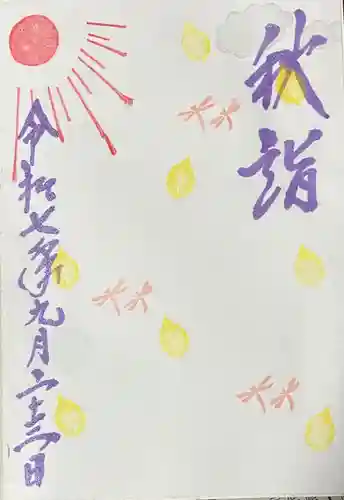 秋詣
令和七年九月二十三日